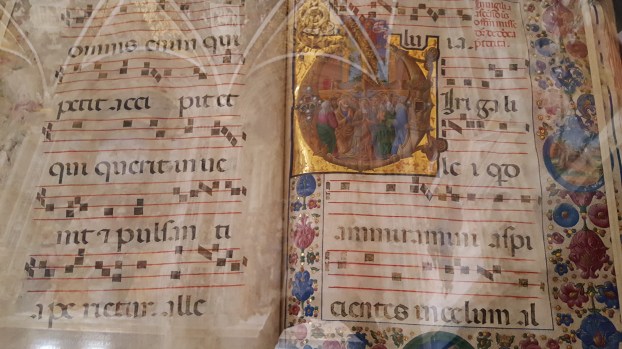 omnis enim qui
petit acci pit et
qui querit inue
nit ⁊ pulsan ti
ape rietur. alle
lu ia.
iri gali
le i qd
ammiramini aspi
cientes in celum al